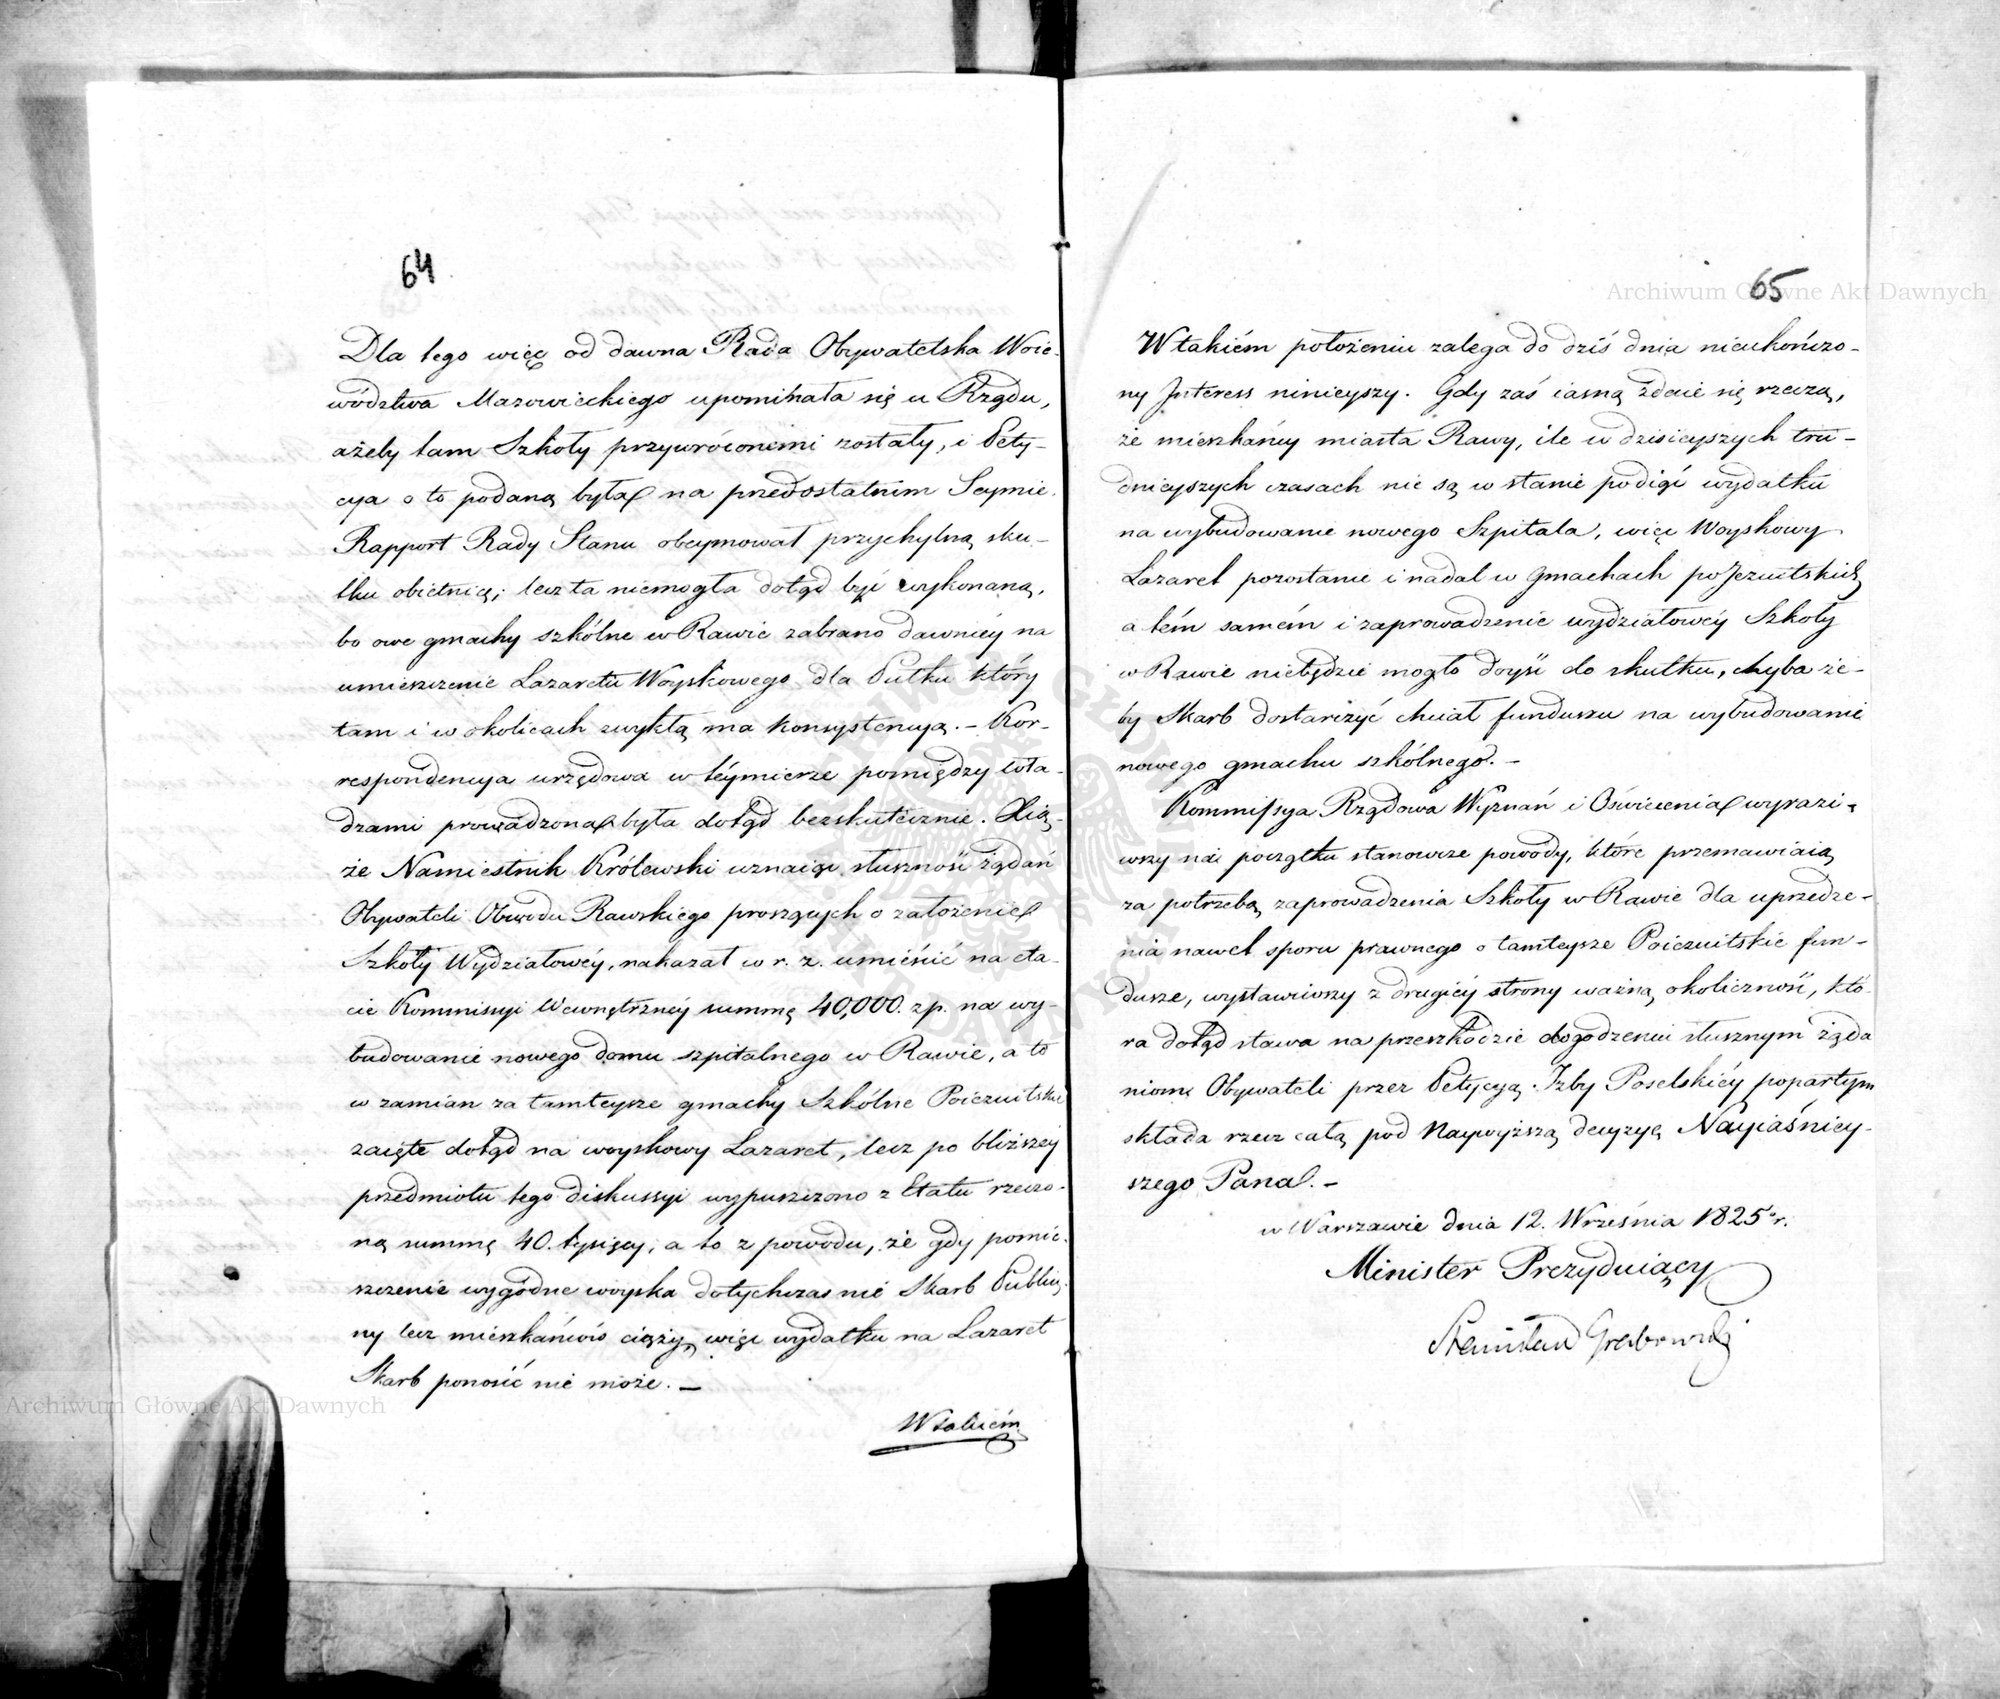 64
Dla tego więc od dawna Rada Obywatelska Woie-
wództwa Mazowieckiego upominała się u Rządu,
ażeby tam Szkoły przywróconemi zostały, i Pety-
cya o to podaną była na przedostatnim Seymie.
Rapport Rady Stanu obeymował przychylną sku-
tku obietnicę; lecz ta niemogła dotąd być wykonaną,
bo owe gmachy szkólne w Rawie zabrano dawniéy na
umieszczenie Lazaretu Woyskowego dla Pułku który
tam i w okolicach zwykłą ma konsystencyą. – Kor-
respondencya urzędowa w téymierze pomiędzy wła-
dzami prowadzona była dotąd bezskutecznie. Xią-
że Namiestnik Królewski uznaiąc słuszność żądań
Obywateli Obwodu Rawskiego proszących o założenie
Szkoły Wydziałowéy, nakazał w r. z. umieścić na eta-
cie Kommissyi Wewnętrznéy summę 40,000. zp. na wy-
budowanie nowego domu szpitalnego w Rawie, a to
w zamian za tamteysze gmachy Szkólne Poiezuitskie
zaięte dotąd na woyskowy Lazaret, lecz po bliższéy
przedmiotu tego diskussyi wypuszczono z Etatu rzeczo-
ną summę 40. tysięcy, a to z powodu, że gdy pomie-
szczenie wygódne woyska dotychczas nie Skarb Publicz-
ny lecz mieszkańców cięży, więc wydatku na Lazaret
Skarb ponosić nie może. –
W takiém
65
W takiém położeniu zalega do dziś dnia nieukończo-
ny Interess ninieyszy. Gdy zaś iasną zdaie się rzeczą,
że mieszkańcy miasta Rawy, ile w dzisieyszych tru-
dnieyszych czasach nie są w stanie podiąć wydatku
na wybudowanie nowego Szpitala, więc Woyskowy
Lazaret pozostanie i nadal w gmachach poJezuitskich
a tém samém i zaprowadzenie wydziałowéy Szkoły
w Rawie niebędzie mogło doyść do skutku, chyba że-
by Skarb dostarczyć chciał funduszu na wybudowanie
nowego gmachu szkólnego. –
Kommissya Rządowa Wyznań i Oświecenia wyrazi-
wszy na początku stanowcze powody, które przemawiaią
za potrzebą zaprowadzenia Szkoły w Rawie dla uprzedze-
nia nawet sporu prawnego o tamteysze Poiezuitskie fun-
dusze, wystawiwszy z drugiéy strony ważną okoliczność, któ-
ra dotąd stawa na przeszkodzie dogodzeniu słusznym żąda
niom Obywateli przez Petycyą Izby Poselskiéy popartym
składa rzecz całą pod Naywyższą decyzyę Nayiaśniey-
szego Pana. –
w Warszawie dnia 12. Września 1825 r.
Minister Prezyduiący
Stanisław Grabowski
Archiwum Główne Akt Dawnych
Archiwum Główne Akt Dawnych